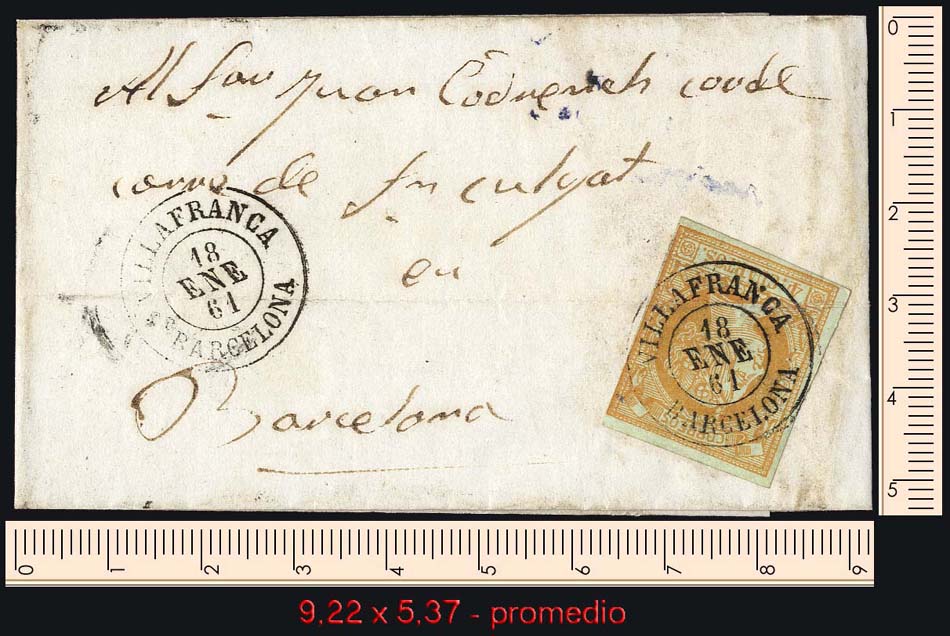 Al Sor Juan Codinench conde
correo de Sn culgat
en
Barcelona
VILLAFRANCA
18
ENE
61
BARCELONA
VILLAFRANCA
18
ENE
61
BARCELONA
0
1
2
3
4
5
0
1
2
3
4
5
6
7
8
9
9,22 x 5,37 - promedio